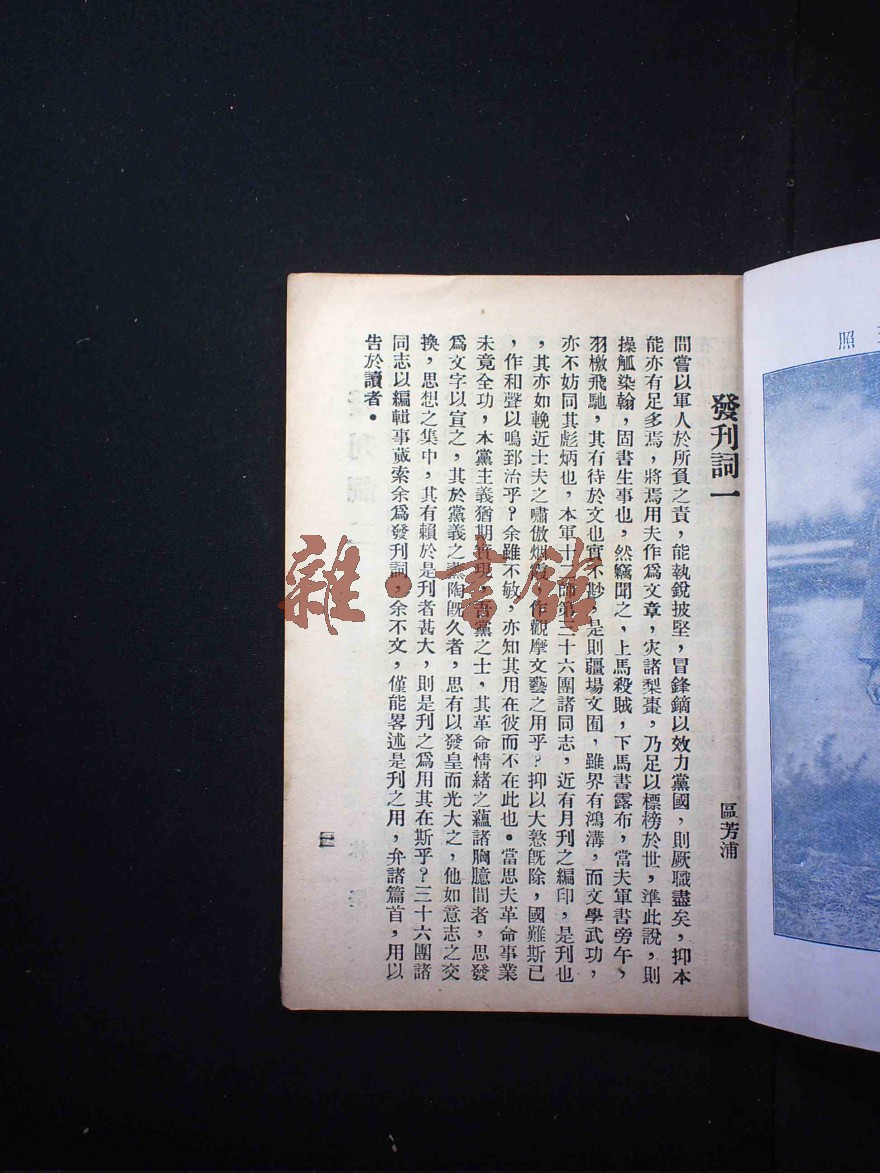 照
發刊詞一
區芳浦
間嘗以軍人於所負之責，能執銳披堅，冒鋒鏑以效力黨國，則厥職盡矣，抑本
能亦有足多焉，將焉用夫作爲文章，灾諸梨棗，乃足以標榜於世，準此說，則
操觚染翰，固書生事也，然竊聞之，上馬殺賊，下馬書露布，當夫軍書旁午，
羽檄飛馳，其有待於文也實不尠，是則疆場文囿，雖界有鴻溝，而文學武功，
亦不妨同其彪炳也，本軍十二師第三十六團諸同志，近有月刊之編印，是刊也
，其亦如輓近士夫之嘯傲烟霞，作觀摩文藝之用乎？抑以大憝旣除，國難斯已
，作和聲以鳴郅治乎？余雖不敏，亦知其用在彼而不在此也。當思夫革命事業
未竟全功，本黨主義猶期實現，吾黨之士，其革命情緒之蘊諸胸臆間者，思發
爲文字以宣之，其於黨義之熏陶旣久者，思有以發皇而光大之，他如意志之交
換，思想之集中，其有賴於是刊者甚大，則是刊之爲用其在斯乎？三十六團諸
同志以編輯事蕆索余爲發刊詞，余不文，僅能畧述是刊之用，弁諸篇首，用以
告於讀者。
雜·書館